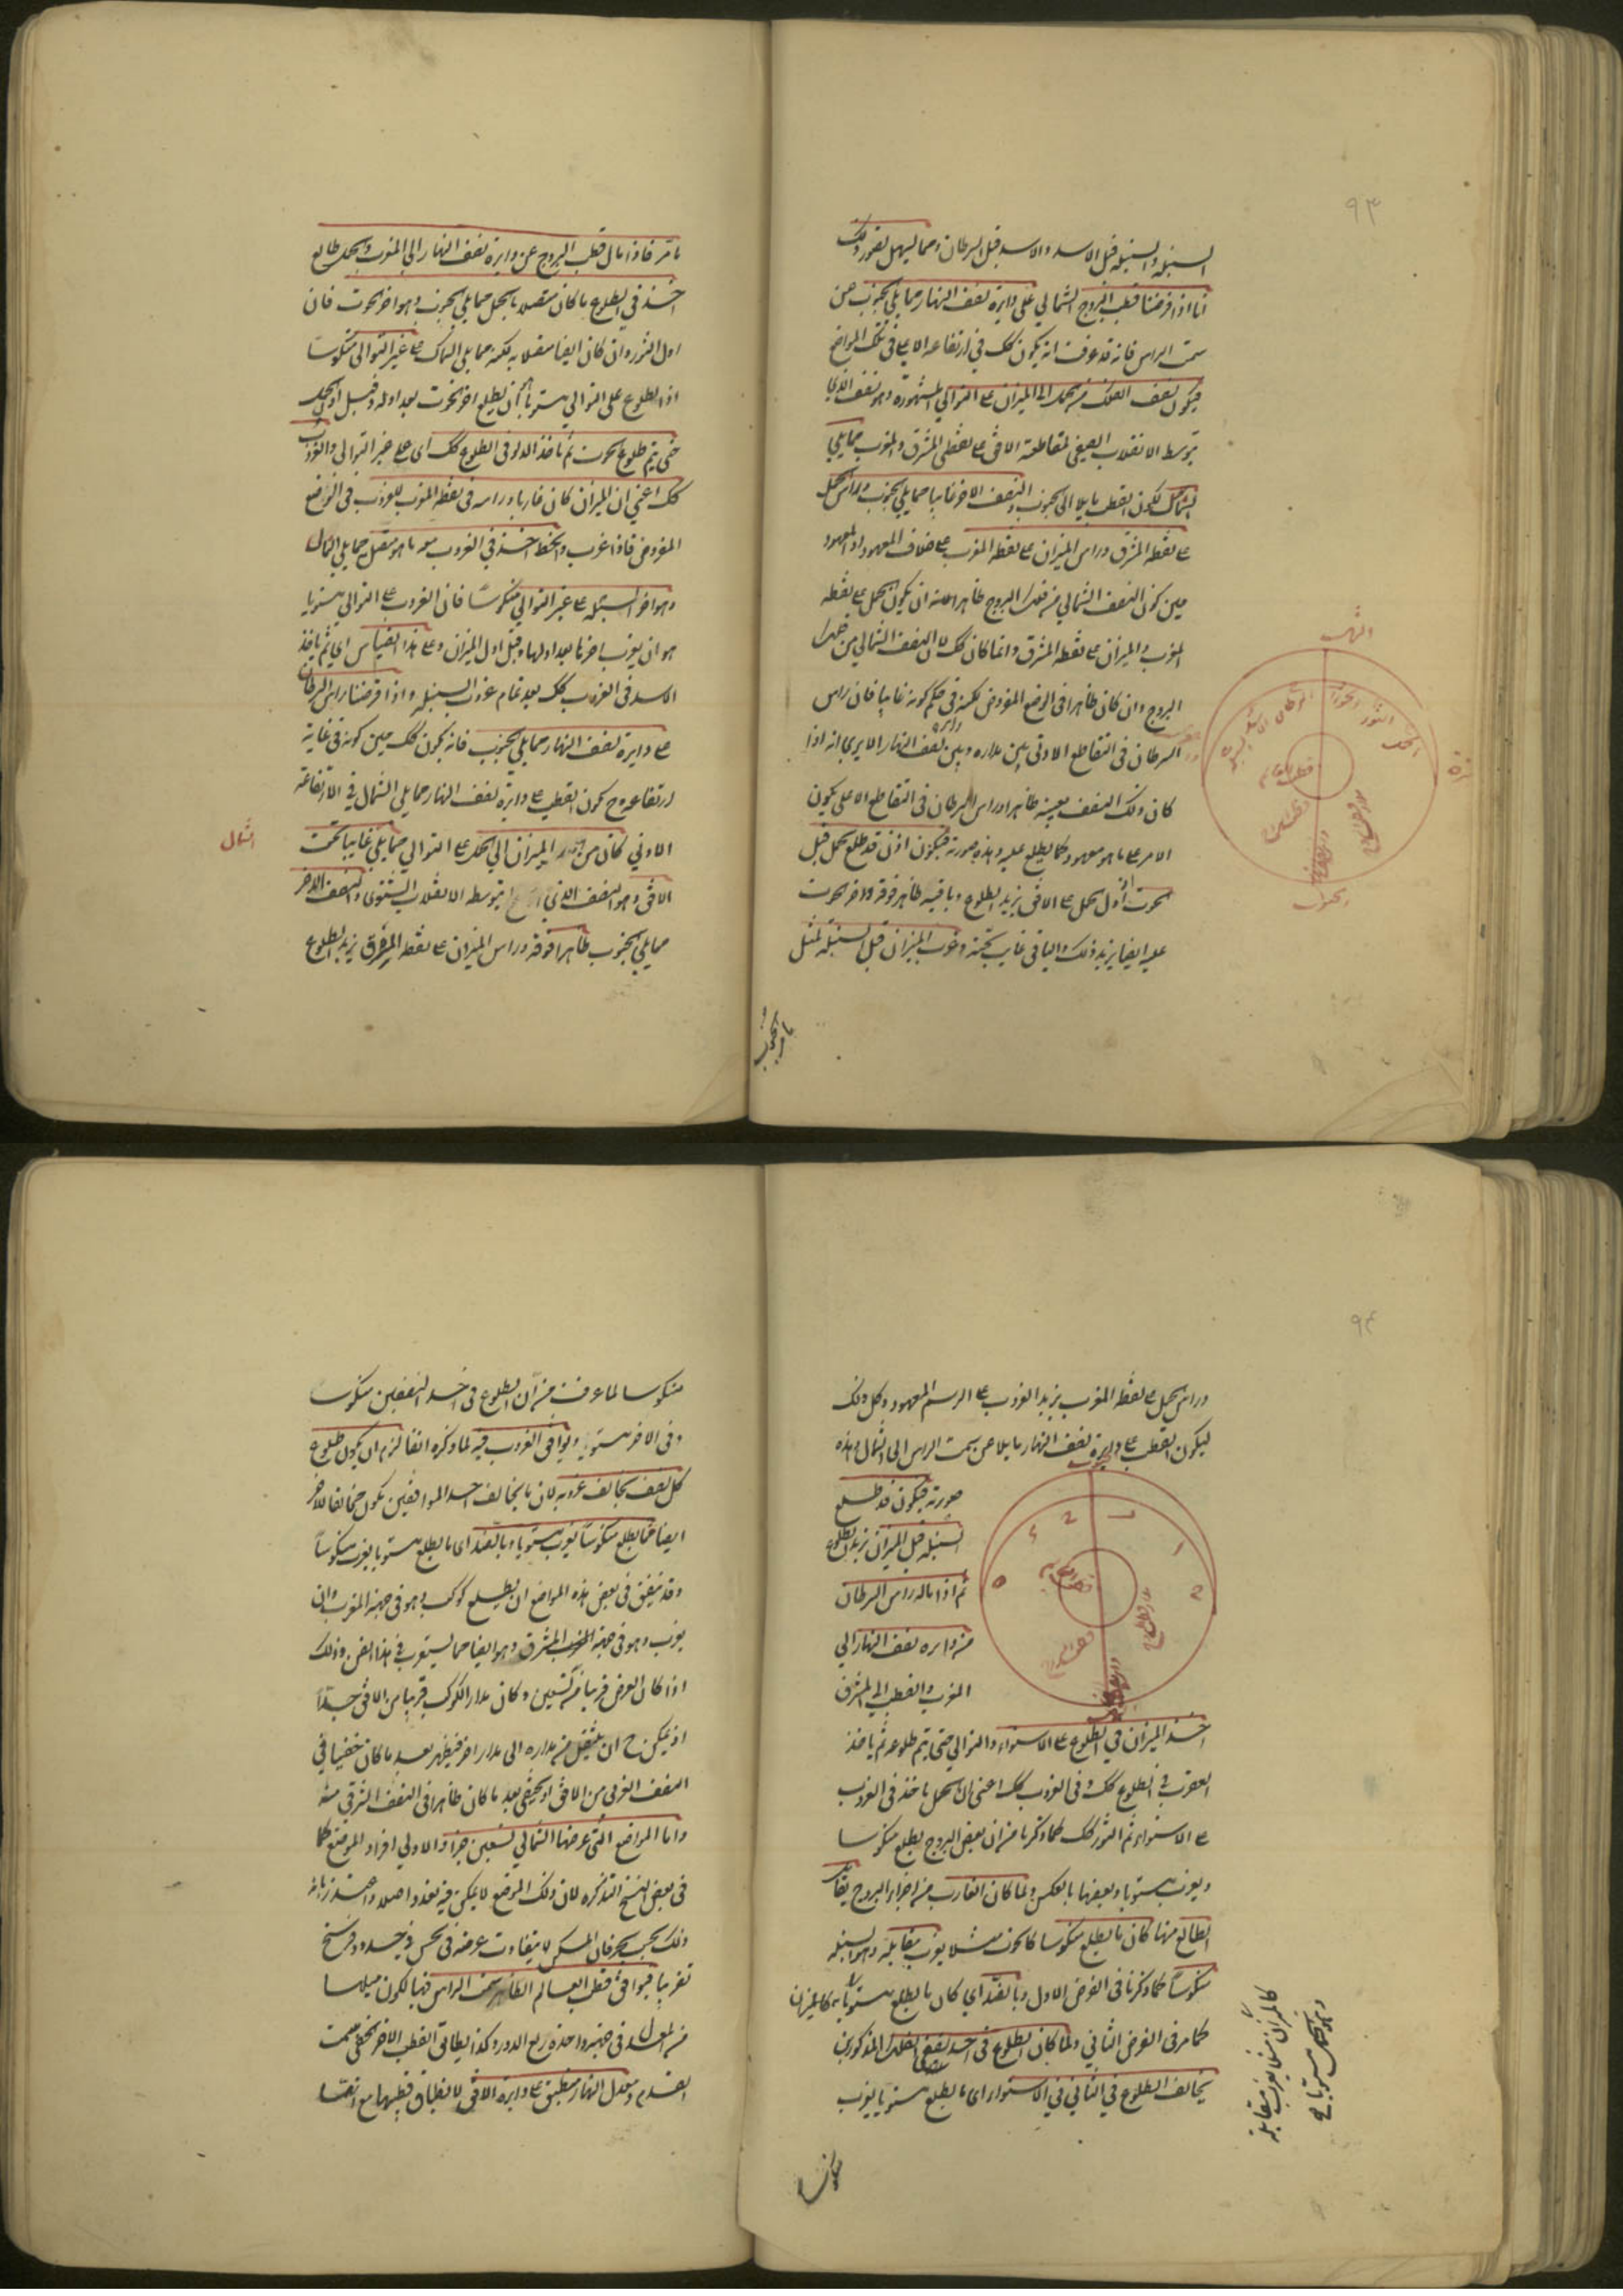 ٩٣
السنبلة والسنبلة قبل الاسد والاسد قبل السرطان ومما يسهل تصور ذلك
انا اذا فرضنا قطب البروج الشمالي على دايرة نصف النهار مما يلي الجنوب عن
سمت الراس فانه قد عرفت انه يكون كك في ارتفاعه الاعلى في تلك المواضع
فيكون نصف الفلك من الحمل الى الميزان على التوالي المشهورة وهو النصف الذي
يتوسط الانقلاب الصيفي لمقاطعته الافق على نقطتي المشرق والمغرب مما يلي
الشمال لكون القطب مايلا الى الجنوب والنصف الاخر غايبا مما يلي الجنوب وراس الحمل
على نقطة المشرق وراس الميزان على نقطة المغرب على خلاف المعهود اذ المعهود
حين كون النصف الشمالي من فلك البروج ظاهرا ان يكون الحمل على نقطة
المغرب والميزان على نقطة المشرق وانما كان كك لان النصف الشمالي من فلك
البروج وان كان ظاهرا في الوضع المفروض لكنه في حكم كونه غايبا فان راس
السرطان في التقاطع الادنى بين مداره وبين دايرة نصف النهار الا يرى انه اذا
كان ذلك النصف بعينه ظاهرا وراس السرطان في التقاطع الاعلى يكون
الامر على ما هو معهود كما يطلع عليه وهذه صورته فيكون اذن قد طلع الحمل قبل
الحوت اذ اول الحمل على الافق يريد الطلوع وباقيه ظاهر فوقه واخر الحوت
عليه ايضا يريد ذلك والباقي غايب تحته وغرب الميزان قبل السنبلة لمثل
الحمل
الثور
الجوزا
السرطان
الجنوب
ما مر فاذا مال قطب البروج عن دايرة نصف النهار الى المغرب والحمل طالع
اخذ في الطلوع ما كان متصلا بالحمل مما يلي الجنوب وهو اخر الحوت فان
اول الثور وان كان ايضا متصلا به لكنه مما يلي الشمال على غير التوالي منكوسا
اذ الطلوع على التوالي مستويا ان يطلع اخر الحوت بعد اوله وقبل اول الحمل
حتى يتم طلوع الحوت ثم ياخذ الدلو في الطلوع كك اى على غير التوالي والغروب
كك اعني ان الميزان كان غاربا وراسه في نقطة المغرب للغروب في الوضع
المفروض فاذا غرب وانحط اخذ في الغروب معه ما هو متصل مما يلي الشمال
وهو اخر السنبلة على غير التوالي منكوسا فان الغروب على التوالي مستويا
هو ان يغرب اخرها بعد اولها وقبل اول الميزان وعلى هذا القياس اي ثم ياخذ
الاسد في الغروب كك بعد تمام غروب السنبلة واذا فرضنا راس السرطان
على دايرة نصف النهار مما يلي الجنوب فانه يكون كك حين كونه في غاية
ارتفاعه وح يكون القطب على دايرة نصف النهار مما يلي الشمال في ارتفاعه
الادنى كان من الميزان الى الحمل على التوالي مما يلي غايبا تحت
الشمال
الافق وهو النصف الذي يتوسطه الانقلاب الشتوي والنصف الاخر
مما يلي الجنوب ظاهرا فوقه وراس الميزان على نقطة المشرق يريد الطلوع
٩٤
وراس الحمل على نقطة المغرب يريد الغروب على الرسم المعهود وكل ذلك
ليكون القطب على دايرة نصف النهار مايلا عن سمت الراس الى الشمال وهذه
صورته فيكون قد طلع
السنبلة قبل الميزان يريد الطلوع
ثم اذا مال راس السرطان
من دايرة نصف النهار الى
المغرب والقطب الى المشرق
اخذ الميزان في الطلوع على الاستواء والتوالي حتى يتم طلوعه ثم ياخذ
العقرب في الطلوع كك وفي الغروب كك اعني ان الحمل ياخذ في الغروب
على الاستواء ثم الثور كك كما ذكرنا من ان بعض البروج يطلع منكوسا
ويغرب مستويا وبعضها بالعكس ولما كان الغارب من اجزاء البروج يقابل
الطالع منها كان ما يطلع منكوسا كالحوت مثلا يغرب مقابله وهو السنبلة
منكوسا كما ذكرنا في الفرض الاول وبالضد اي كان ما يطلع مستويا
كالميزان مثلا يغرب مقابله
وهو الحمل مستويا
كما مر في الفرض الثاني ولما كان الطلوع في احد نصفي الفلك المذكورين
يخالف الطلوع في الثاني في الاستواء اى ما يطلع مستويا يغرب
منكوسا
منكوسا لما عرفت من ان الطلوع في احد النصفين منكوسا
وفي الاخر مستويا ويوافق الغروب فيه لما ذكره انفا لزم ان يكون طلوع
كل نصف يخالف غروبه لان ما يخالف احد الموافقين يكون مخالفا للاخر
ايضا فما يطلع منكوسا يغرب مستويا وبالضد اى ما يطلع مستويا يغرب منكوسا
وقد يتفق في بعض هذه المواضع ان يطلع كوكب وهو في جهة المغرب وان
يغرب وهو في جهة المشرق وهو ايضا مما يستغرب في هذا الفن وذلك
اذا كان العرض قريبا من تسعين وكان مدار الكوكب قريبا من الافق جدا
اذ يمكن ح ان ينتقل من مداره الى مدار اخر فيظهر بعد ما كان خفيا في
النصف الغربي من الافق او يخفى بعد ما كان ظاهرا في النصف الشرقي منه
واما المواضع التي عرضها الشمالي تسعين جزءا والاولى افراد الموضع كما
في بعض النسخ التذكرة لان ذلك الموضع لا يمكن فيه تعدد اصلا
ذلك بحسب فان المسكن لا يتفاوت عرضه في الحس في حدود فرسخ
تقريبا فيوافق قطب العالم الظاهر سمت الراس فيها لكون ميلها
من المعدل في جهة واحدة ربع الدور وكذا يطابق القطب الاخر الخفي سمت
القدم ومعدل النهار منطبق على دايرة الافق لانطباق قطبيهما مع